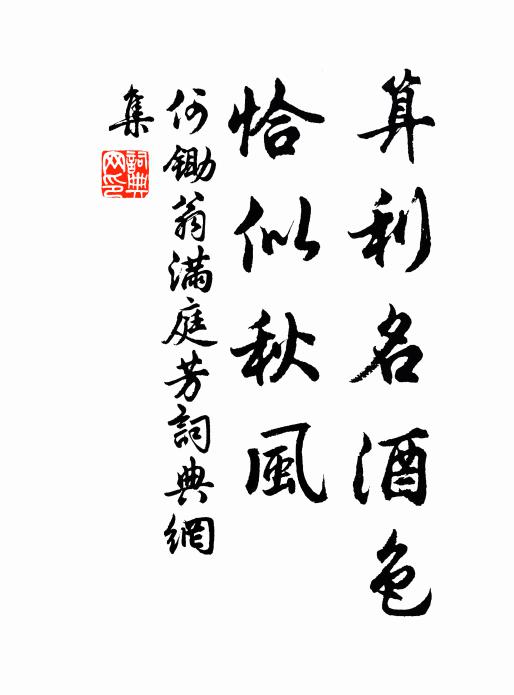 算利名酒色
恰似秋風
何鋤翁滿庭芳詞典網
集
詞典
网印